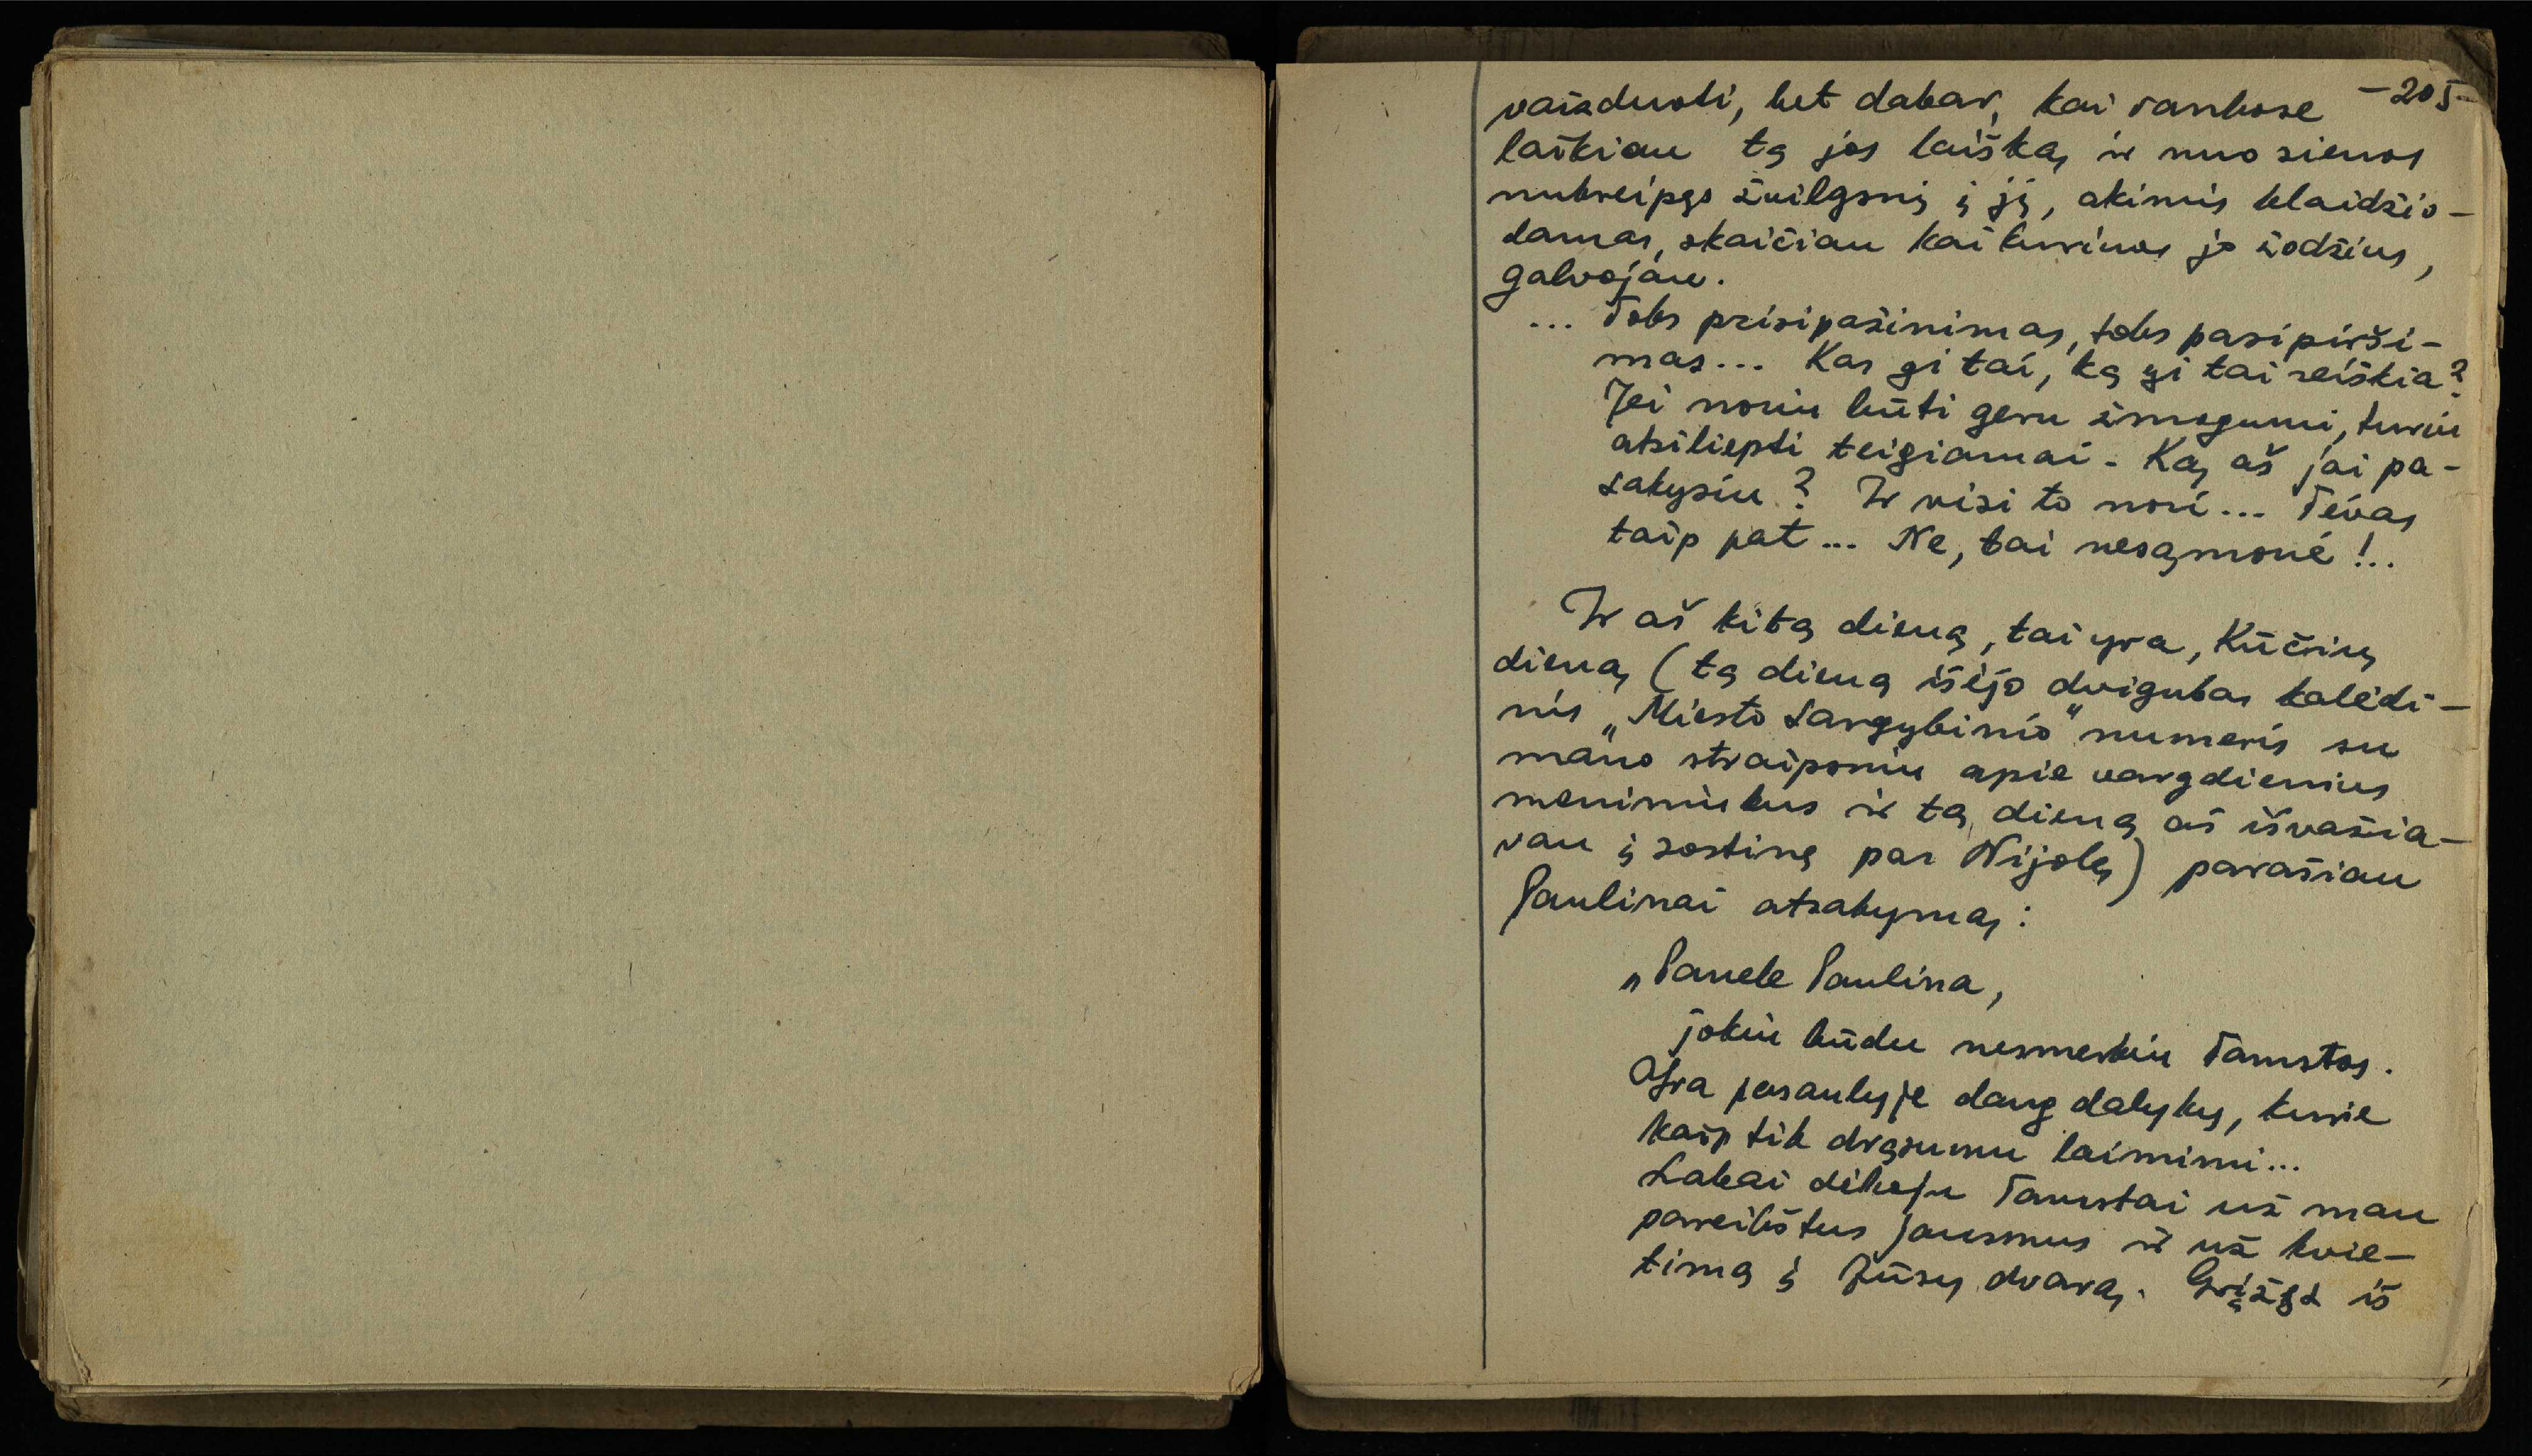 -205-
vaizduoti, bet dabar, kai rankose
laikiau tą jos laišką ir nuo sienos
nukreipęs žvilgsnį į jį, akimis klaidžio-
damas, skaičiau kai kuriuos jo žodžius,
galvojau.
... Toks prisipažinimas, toks pasipirši-
mas... Kas gi tai, ką gi tai reiškia?
Jei noriu būti geru žmogumi, turiu
atsiliepti teigiamai. Ką aš jai pa-
sakysiu? Ir visi to nori... Tėvas
taip pat... Ne, tai nesąmonė!..
Ir aš kitą dieną, tai yra, Kūčių
dieną (tą dieną išėjo dvigubas kalėdi-
nis „Miesto Sargybinio" numeris su
mano straipsniu apie vargdienius
menininkus ir tą dieną aš išvažia-
vau į sostinę pas Nijolę) parašiau
Paulinai atsakymą:
„Panele Paulina,
jokiu būdu nesmerkiu Tamstos.
Yra pasaulyje daug dalykų, kurie
kaip tik drąsumu laimimi...
Labai dėkoju Tamstai už man
pareikštus jausmus ir už kvie-
timą į Jūsų dvarą. Grįžęs iš